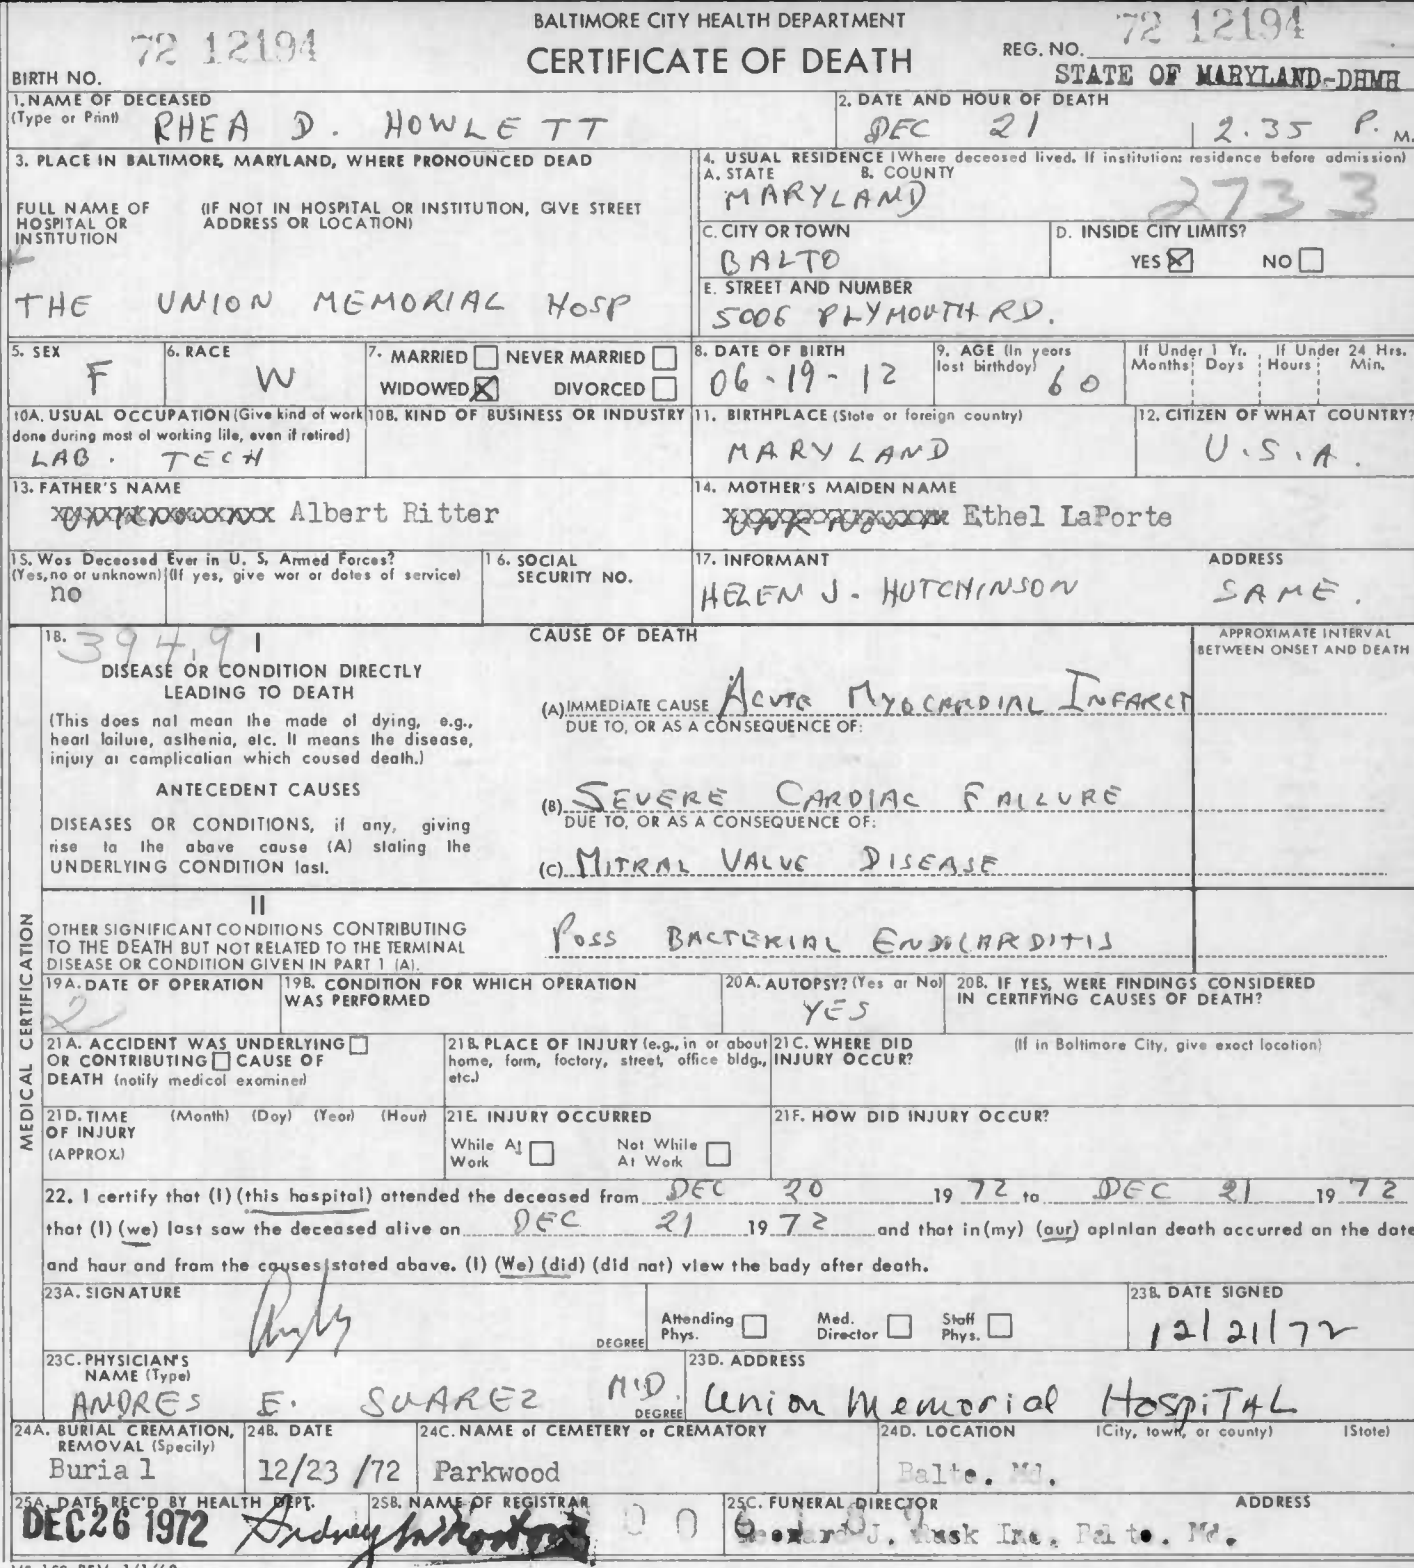 BALTIMORE CITY HEALTH DEPARTMENT
CERTIFICATE OF DEATH
72 12194
BIRTH NO.
REG. NO. 72 12194
STATE OF MARYLAND-DHMH
1. NAME OF DECEASED
(Type or Print) RHEA D. HOWLETT
2. DATE AND HOUR OF DEATH
DEC 21 | 2.35 P. M.
3. PLACE IN BALTIMORE, MARYLAND, WHERE PRONOUNCED DEAD
FULL NAME OF HOSPITAL OR INSTITUTION
(IF NOT IN HOSPITAL OR INSTITUTION, GIVE STREET ADDRESS OR LOCATION)
THE UNION MEMORIAL HOSP
4. USUAL RESIDENCE (Where deceased lived. If institution: residence before admission)
A. STATE B. COUNTY
MARYLAND 2733
C. CITY OR TOWN
BALTO
D. INSIDE CITY LIMITS?
YES NO
E. STREET AND NUMBER
5006 PLYMOUTH RD.
5. SEX
F
6. RACE
W
7. MARRIED NEVER MARRIED
WIDOWED DIVORCED
8. DATE OF BIRTH
06-19-12
9. AGE (In years last birthday) 60
If Under 1 Yr. If Under 24 Hrs.
Months Days Hours Min.
10A. USUAL OCCUPATION (Give kind of work done during most of working life, even if retired)
LAB. TECH
10B. KIND OF BUSINESS OR INDUSTRY
11. BIRTHPLACE (State or foreign country)
MARYLAND
12. CITIZEN OF WHAT COUNTRY?
U.S.A.
13. FATHER'S NAME
Albert Ritter
14. MOTHER'S MAIDEN NAME
Ethel LaPorte
15. Was Deceased Ever in U. S. Armed Forces?
(Yes, no or unknown) (If yes, give war or dates of service)
no
16. SOCIAL SECURITY NO.
17. INFORMANT ADDRESS
HELEN J. HUTCHINSON SAME.
MEDICAL CERTIFICATION
18. 394.9 I
CAUSE OF DEATH
APPROXIMATE INTERVAL BETWEEN ONSET AND DEATH
DISEASE OR CONDITION DIRECTLY LEADING TO DEATH
(This does not mean the mode of dying, e.g., heart failure, asthenia, etc. It means the disease, injury or complication which caused death.)
(A) IMMEDIATE CAUSE ACUTE MYOCARDIAL INFARCT
DUE TO, OR AS A CONSEQUENCE OF:
ANTECEDENT CAUSES
DISEASES OR CONDITIONS, if any, giving rise to the above cause (A) stating the UNDERLYING CONDITION last.
(B) SEVERE CARDIAC FAILURE
DUE TO, OR AS A CONSEQUENCE OF:
(C) MITRAL VALVE DISEASE
II
OTHER SIGNIFICANT CONDITIONS CONTRIBUTING TO THE DEATH BUT NOT RELATED TO THE TERMINAL DISEASE OR CONDITION GIVEN IN PART 1 (A).
POSS BACTERIAL ENDOCARDITIS
19A. DATE OF OPERATION
2
19B. CONDITION FOR WHICH OPERATION WAS PERFORMED
20A. AUTOPSY? (Yes or No)
YES
20B. IF YES, WERE FINDINGS CONSIDERED IN CERTIFYING CAUSES OF DEATH?
21A. ACCIDENT WAS UNDERLYING OR CONTRIBUTING CAUSE OF DEATH (notify medical examiner)
21B. PLACE OF INJURY (e.g., in or about home, farm, factory, street, office bldg., etc.)
21C. WHERE DID INJURY OCCUR?
(If in Baltimore City, give exact location)
21D. TIME OF INJURY (APPROX.)
(Month) (Day) (Year) (Hour)
21E. INJURY OCCURRED
While At Work Not While At Work
21F. HOW DID INJURY OCCUR?
22. I certify that (I) (this hospital) attended the deceased from DEC 20 19 72 to DEC 21 19 72
that (I) (we) last saw the deceased alive on DEC 21 19 72 and that in (my) (our) opinion death occurred on the date
and hour and from the causes stated above. (I) (We) (did) (did not) view the body after death.
23A. SIGNATURE
DEGREE
Attending Phys. Med. Director Staff Phys.
23B. DATE SIGNED
12/21/72
23C. PHYSICIAN'S NAME (Type)
ANDRES E. SUAREZ M.D.
DEGREE
23D. ADDRESS
Union Memorial HospiTAL
24A. BURIAL CREMATION, REMOVAL (Specify)
Burial
24B. DATE
12/23/72
24C. NAME of CEMETERY or CREMATORY
Parkwood
24D. LOCATION (City, town, or county) (State)
Balto. Md.
25A. DATE REC'D BY HEALTH DEPT.
DEC 26 1972
25B. NAME OF REGISTRAR
25C. FUNERAL DIRECTOR ADDRESS
J. Ruck Inc. Balto. Md.